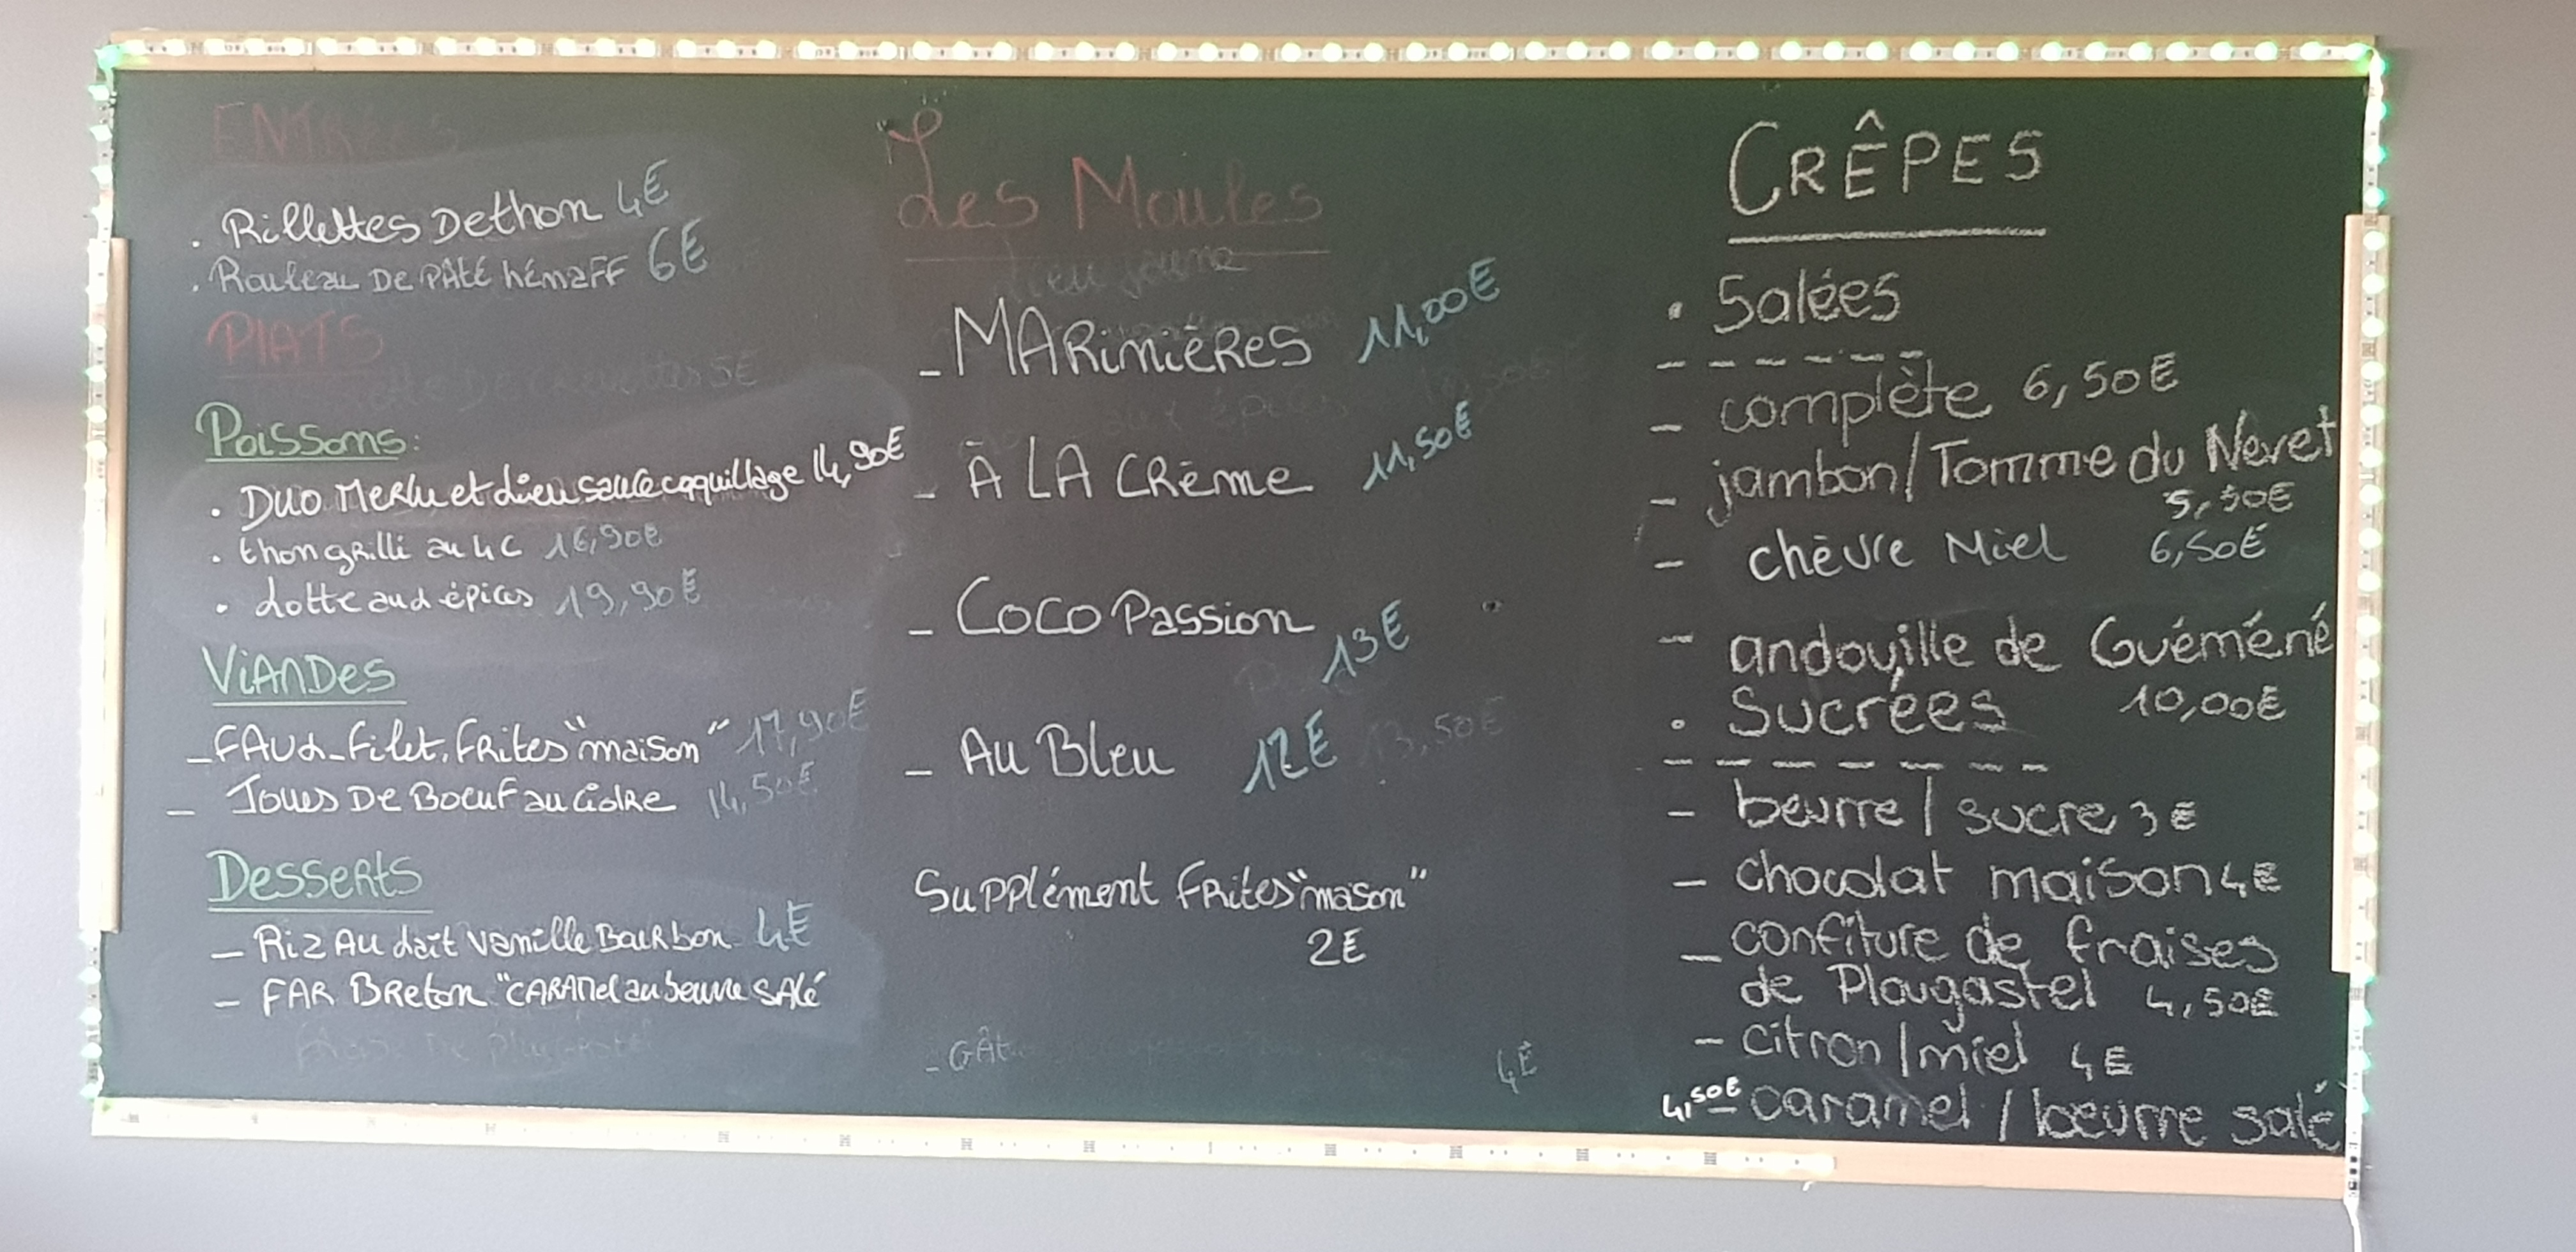 ENTRÉES
. Rillettes De thon 4€
. Rouleau De PÂté hénaFF 6€
PLATS
Poissons:
. DUO Merlu et Lieu sauce coquillage 14,90€
. thon grillé au 4C 16,90€
. Lotte aux épices 19,90€
ViANDes
_ FAUX-Filet, FRites "maison" 17,90€
_ JOUES De BOEUF au CidRe 14,50€
Desserts
_ Riz AU Lait Vanille BOURbon 4€
_ FAR BReton "CARAMel au beurre SAlé
Les Moules
_ MARinièRes 11,00€
_ À LA CRème 11,50€
_ COCO Passion
13€
_ AU Bleu 12€ 13,50€
Supplément FRites "maison"
2€
_ GÂt 4€
CRÊPES
. Salées
- complète 6,50€
- jambon/Tomme du Nevet
5,50€
- chèvre Miel 6,50€
- andouille de Guéméné
. Sucrées 10,00€
- beurre / sucre 3€
- chocolat maison 4€
- confiture de fraises
de Plougastel 4,50€
- citron/miel 4€
4,50€ - caramel / beurre salé